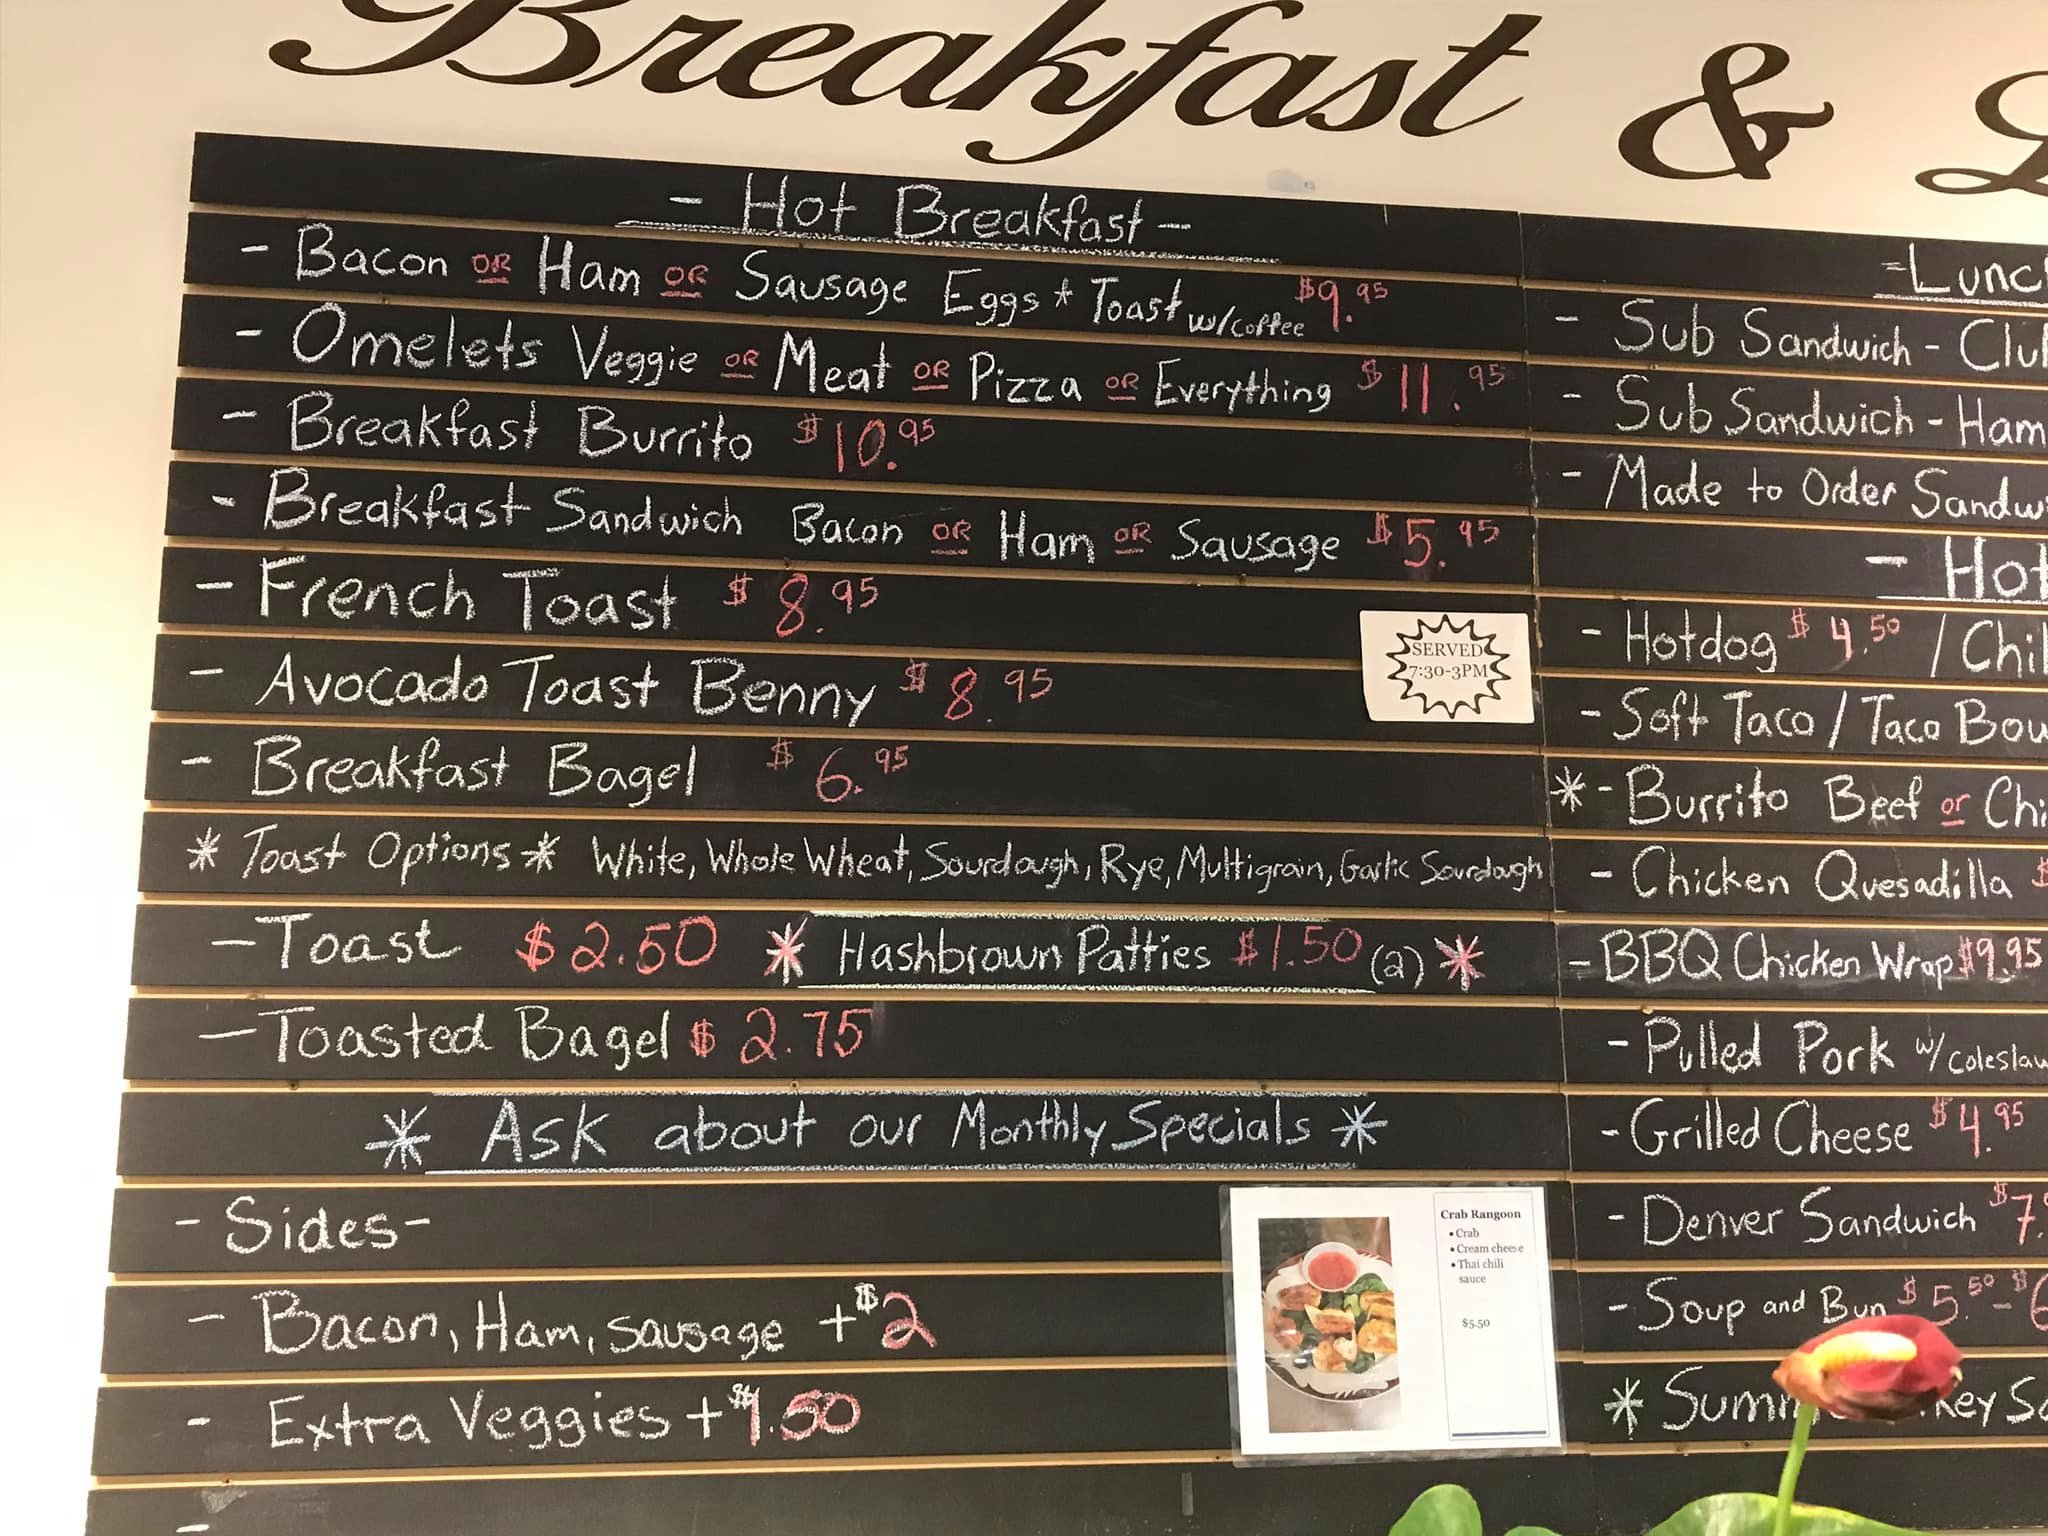 Breakfast &
- Hot Breakfast -
- Bacon OR Ham OR Sausage Eggs * Toast w/coffee $9.95
- Omelets Veggie OR Meat OR Pizza OR Everything $11.95
- Breakfast Burrito $10.95
- Breakfast Sandwich Bacon OR Ham OR Sausage $5.95
- French Toast $8.95
- Avocado Toast Benny $8.95
SERVED
7:30-3PM
- Breakfast Bagel $6.95
* Toast Options * White, Whole Wheat, Sourdough, Rye, Multigrain, Garlic Sourdough
- Toast $2.50 * Hashbrown Patties $1.50 (2) *
- Toasted Bagel $2.75
* Ask about our Monthly Specials *
- Sides -
- Bacon, Ham, Sausage +$2
- Extra Veggies +$1.50
Crab Rangoon
• Crab
• Cream cheese
• Thai chili
sauce
$5.50
- Sub Sandwich -
- Sub Sandwich - Ham
- Made to Order
- Hot
- Hotdog $4.50 /
- Soft Taco / Taco
* - Burrito Beef or
- Chicken Quesadilla $
- BBQ Chicken Wrap $9.95
- Pulled Pork w/
- Grilled Cheese $4.95
- Denver Sandwich $7.
- Soup and Bun $5.50 - $6
*